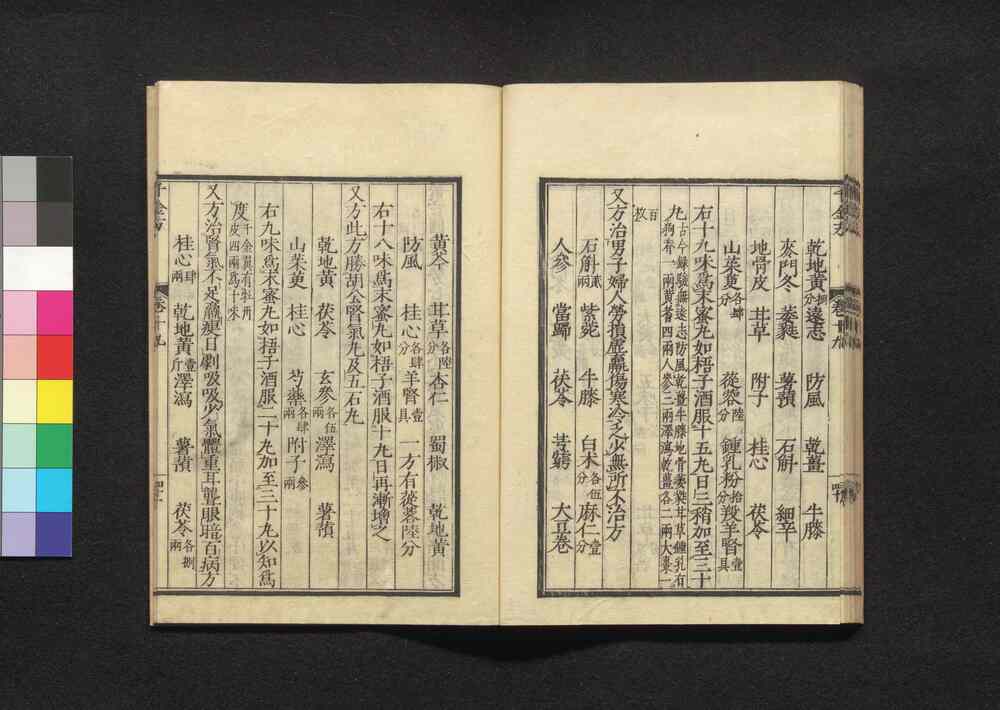 乾地黃捌分 遠志 防風 乾薑 牛膝
麥門冬 葳蕤 薯蕷 石斛 細辛
地骨皮 甘草 附子 桂心 茯苓
山茱萸各肆分 蓯蓉陸分 鍾乳粉拾分 羖羊腎壹具
右十九味爲末蜜丸如梧子酒服十五丸日三稍加至三十
丸
又方治男子婦人勞損虛羸傷寒冷乏少無所不治方
石斛貳兩 紫菀 牛膝 白朮各伍分 麻仁壹分
人參 當歸 茯苓 芎藭 大豆卷
黃芩 甘草各陸分 杏仁 蜀椒 乾地黃
防風 桂心各肆分 羊腎壹具 一方有蓯蓉陸分
右十八味爲末蜜丸如梧子酒服十丸日再漸增之
又方此方勝胡公腎氣丸及五石丸
乾地黃 茯苓 玄參各伍兩 澤瀉 薯蕷
山茱萸 桂心 芍藥各肆兩 附子參兩
右九味爲末蜜丸如梧子酒服二十丸加至三十丸以知爲
度千金翼有牡丹皮四兩爲十味
又方治腎氣不足羸瘦日劇吸吸少氣體重耳聾眼暗百病方
桂心肆兩 乾地黃壹斤 澤瀉 薯蕷 茯苓各捌兩